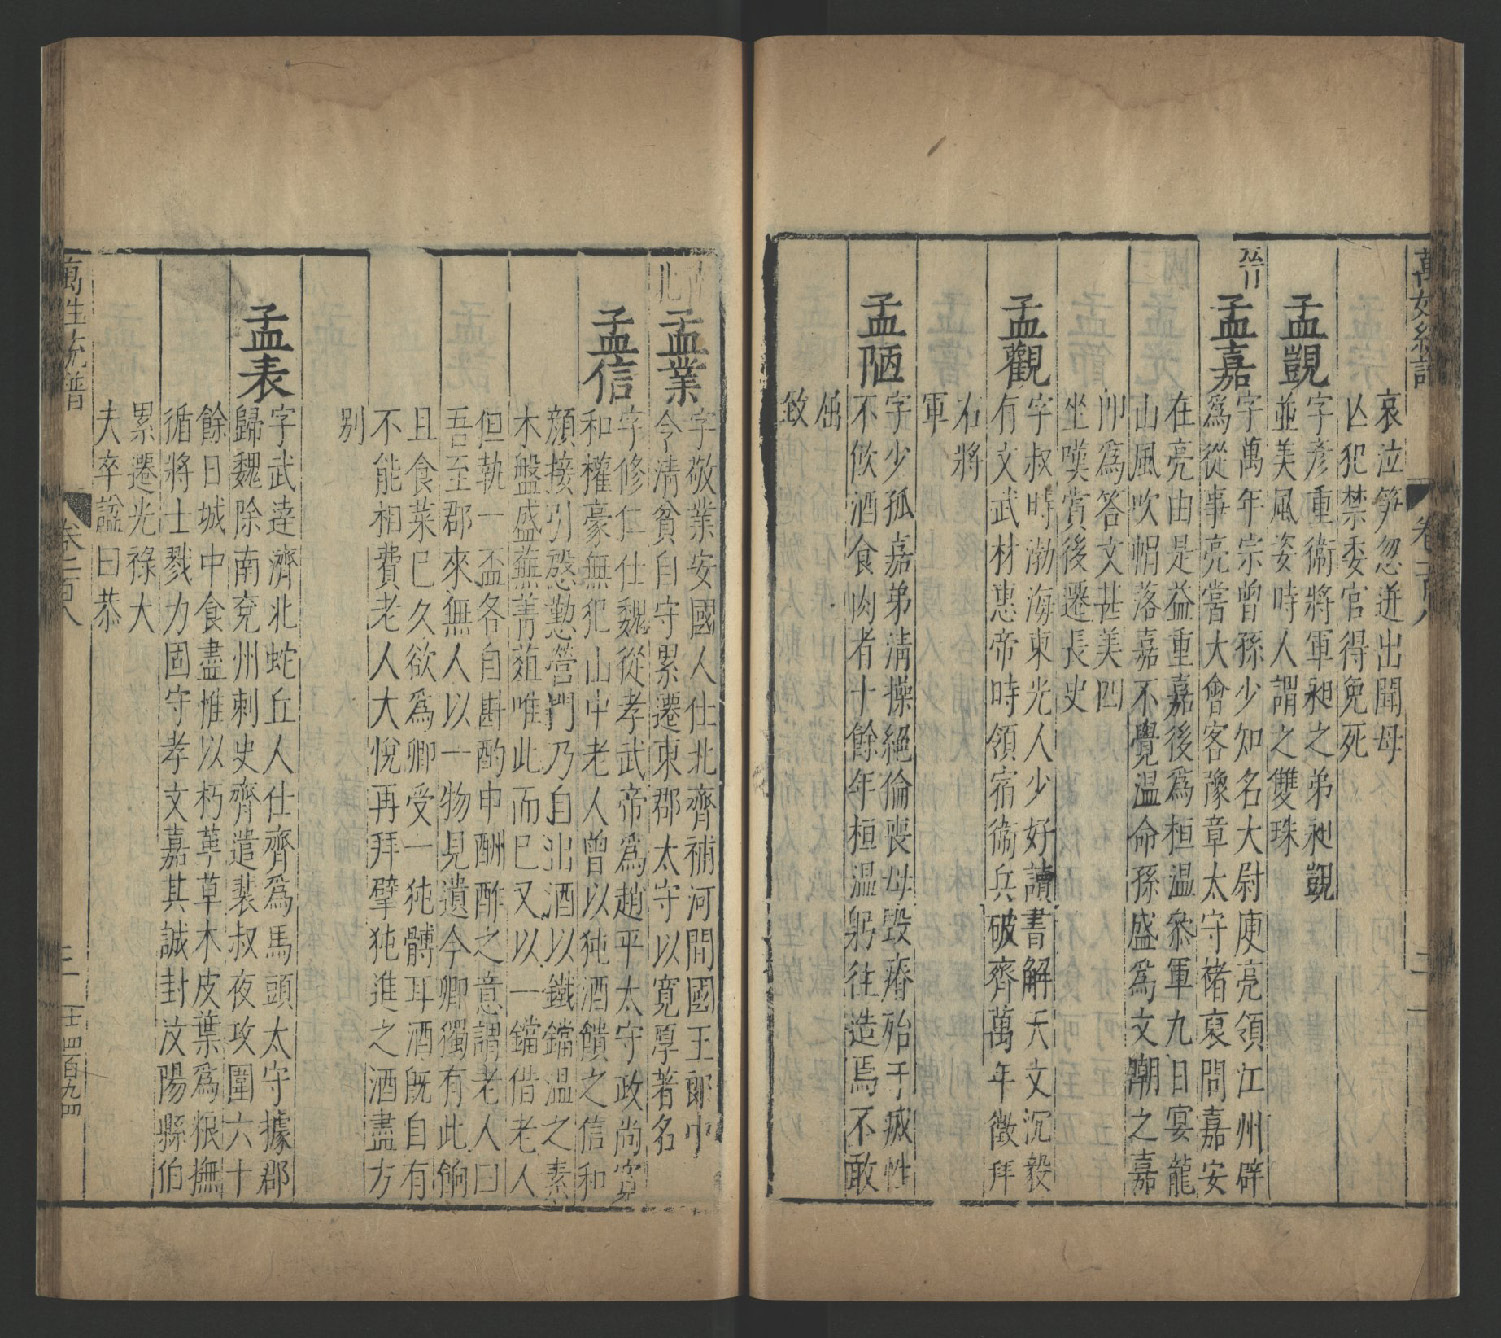 萬姓統譜
卷一百八
二
哀泣笋忽迸出聞母
亡犯禁委官得免死
孟覬
字彥重衛將軍昶之弟昶覬
並美風姿時人謂之雙珠
晉
孟嘉
字萬年宗曾孫少知名大尉庾亮領江州辟
為從事亮嘗大會客豫章太守褚裒問嘉安
在亮由是益重嘉後為桓溫參軍九日宴龍
山風吹帽落嘉不覺溫命孫盛為文潮之嘉
卽為答文甚美四
坐嘆賞後遷長史
孟觀
字叔時渤海東光人少好讀書解天文沉毅
有文武材惠帝時領宿衞兵破齊萬年徵拜
右將
軍
孟陋
字少孤嘉弟淸操絕倫喪母毀瘠殆于㓕性
不飲酒食肉者十餘年桓溫躬往造焉不敢
屈
致
北
孟業
字敬業安國人仕北齊補河間國王郎中
令淸貧自守累遷東郡太守以寬厚著名
孟信
字修仁仕魏從孝武帝為趙平太守政尚寬
和權豪無犯山中老人曾以㹠酒饋之信和
顏接引慇懃營門乃自出酒以鐵鐺溫之素
木盤盛蕪菁葅唯此而已又以一鐺借老人
但執一盃各自斟酌申酬酢之意謂老人曰
吾至郡來無人以一物見遺今卿獨有此餉
且食菜已久欲為卿受一㹠髆耳酒旣自有
不能相費老人大悅再拜擘㹠進之酒盡方
別
孟表
字武逹濟北蛇丘人仕齊為馬頭太守據郡
歸魏除南兗州刺史齊遣裴叔夜攻圍六十
餘日城中食盡惟以朽革草木皮葉為粮撫
循將士戮力固守孝文嘉其誠封汶陽縣伯
累遷光祿大
夫卒諡曰恭
萬姓統譜
卷一百八
三
四百九四